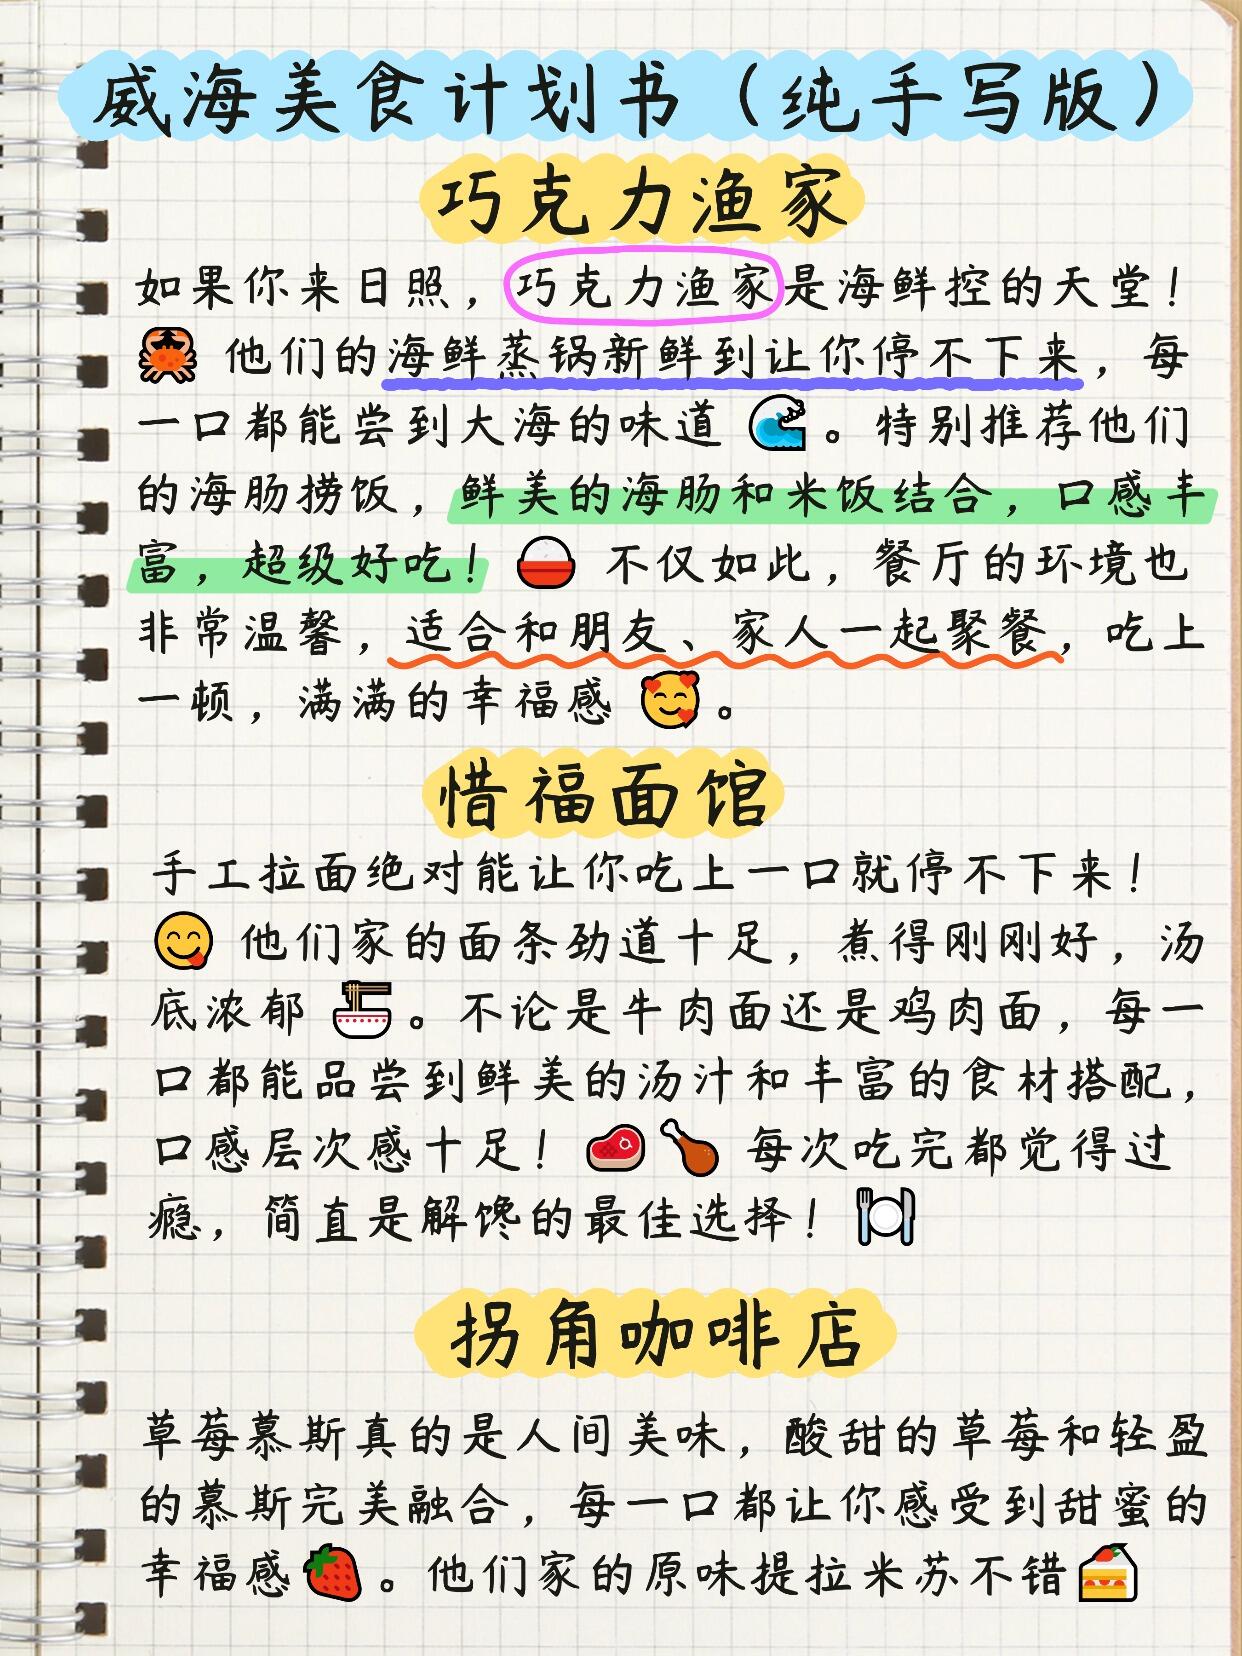 威海美食计划书（纯手写版）
巧克力渔家
如果你来日照，巧克力渔家是海鲜控的天堂！
🦀 他们的海鲜蒸锅新鲜到让你停不下来，每
一口都能尝到大海的味道 🌊。特别推荐他们
的海肠捞饭，鲜美的海肠和米饭结合，口感丰
富，超级好吃！🍚 不仅如此，餐厅的环境也
非常温馨，适合和朋友、家人一起聚餐，吃上
一顿，满满的幸福感 🥰。
惜福面馆
手工拉面绝对能让你吃上一口就停不下来！
😋 他们家的面条劲道十足，煮得刚刚好，汤
底浓郁 🍜。不论是牛肉面还是鸡肉面，每一
口都能品尝到鲜美的汤汁和丰富的食材搭配，
口感层次感十足！🥩🍗 每次吃完都觉得过
瘾，简直是解馋的最佳选择！🍽️
拐角咖啡店
草莓慕斯真的是人间美味，酸甜的草莓和轻盈
的慕斯完美融合，每一口都让你感受到甜蜜的
幸福感🍓。他们家的原味提拉米苏不错🍰